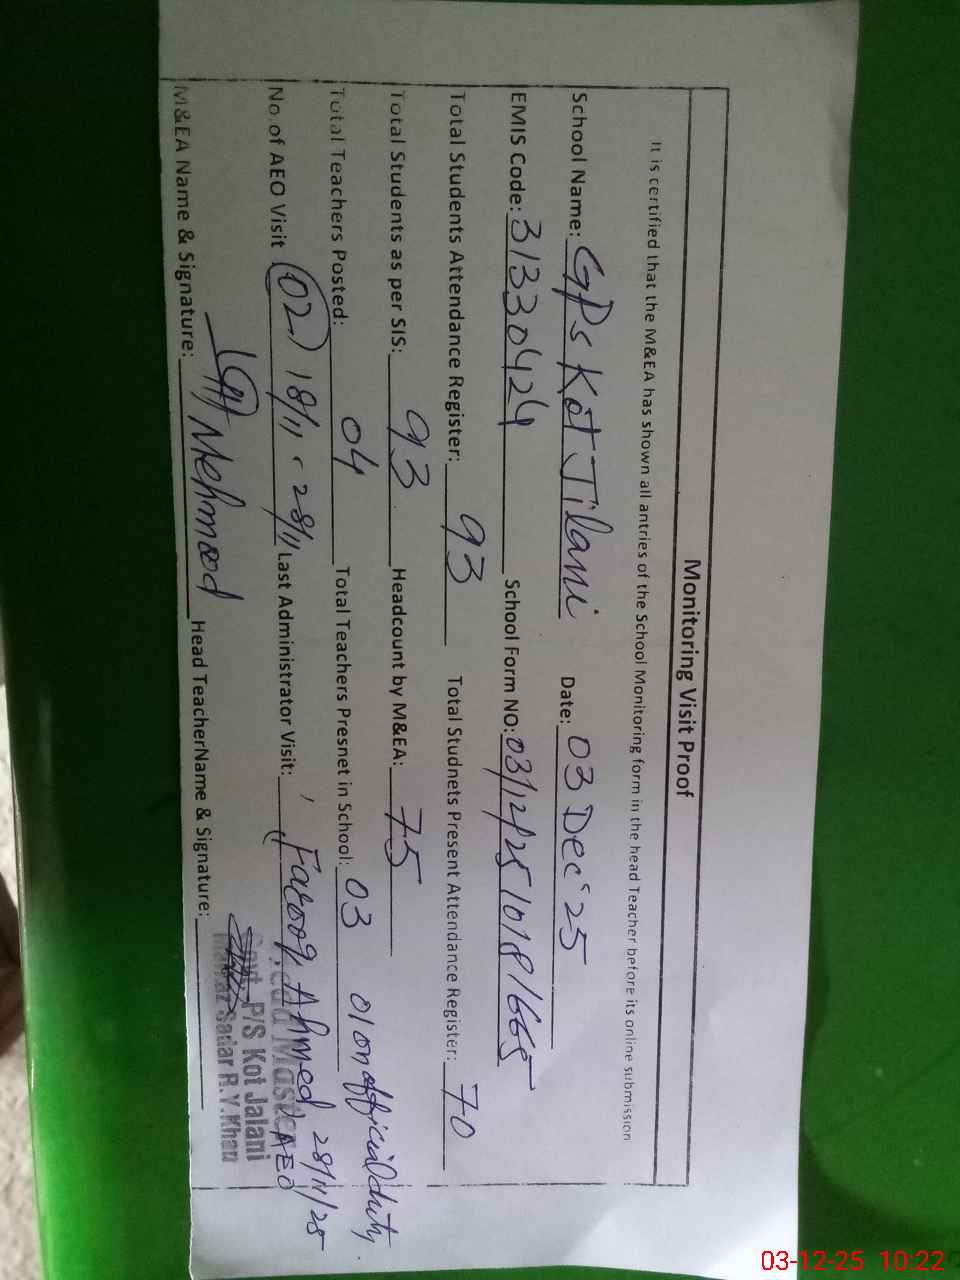 Monitoring Visit Proof
It is certified that the M&EA has shown all antries of the School Monitoring form in the head Teacher before its online submission
School Name: GPS Kot Jilani Date: 03 Dec' 25
EMIS Code: 31330424 School Form NO: 03/12/25/018/665
Total Students Attendance Register: 93 Total Studnets Present Attendance Register: 70
Total Students as per SIS: 93 Headcount by M&EA: 75
Total Teachers Posted: 04 Total Teachers Presnet in School: 03 01 on official duty.
No of AEO Visit 02 18/11, 28/11 Last Administrator Visit: (Farooq Ahmed AEO 28/11/25
M&EA Name & Signature: Mehmood Head TeacherName & Signature:
Head Master
Govt. P/S Kot Jalani
Sadar R.Y.Khan
03-12-25 10:22